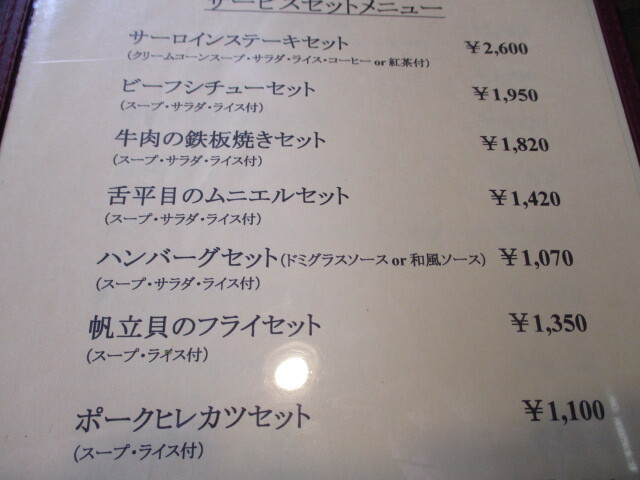 サービスセットメニュー
サーロインステーキセット ￥2,600
(クリームコーンスープ・サラダ・ライス・コーヒー or 紅茶付)
ビーフシチューセット ￥1,950
(スープ・サラダ・ライス付)
牛肉の鉄板焼きセット ￥1,820
(スープ・サラダ・ライス付)
舌平目のムニエルセット ￥1,420
(スープ・サラダ・ライス付)
ハンバーグセット(ドミグラスソース or 和風ソース) ￥1,070
(スープ・サラダ・ライス付)
帆立貝のフライセット ￥1,350
(スープ・ライス付)
ポークヒレカツセット ￥1,100
(スープ・ライス付)